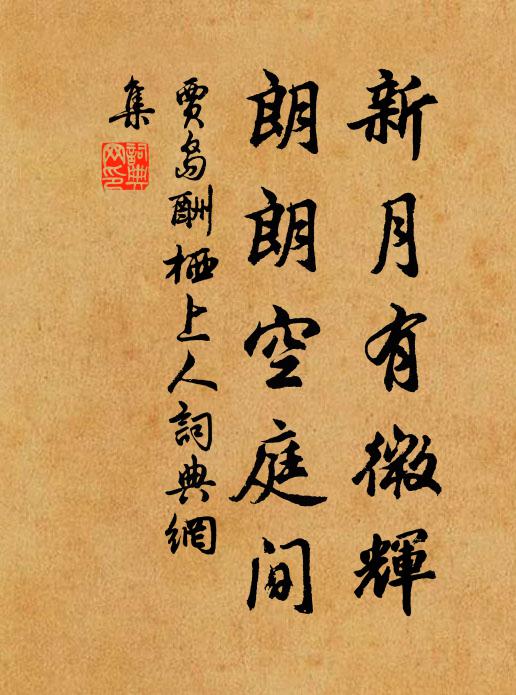 新月有微輝
朗朗空庭間
賈島酬栖上人詞典網
集
詞典
网印